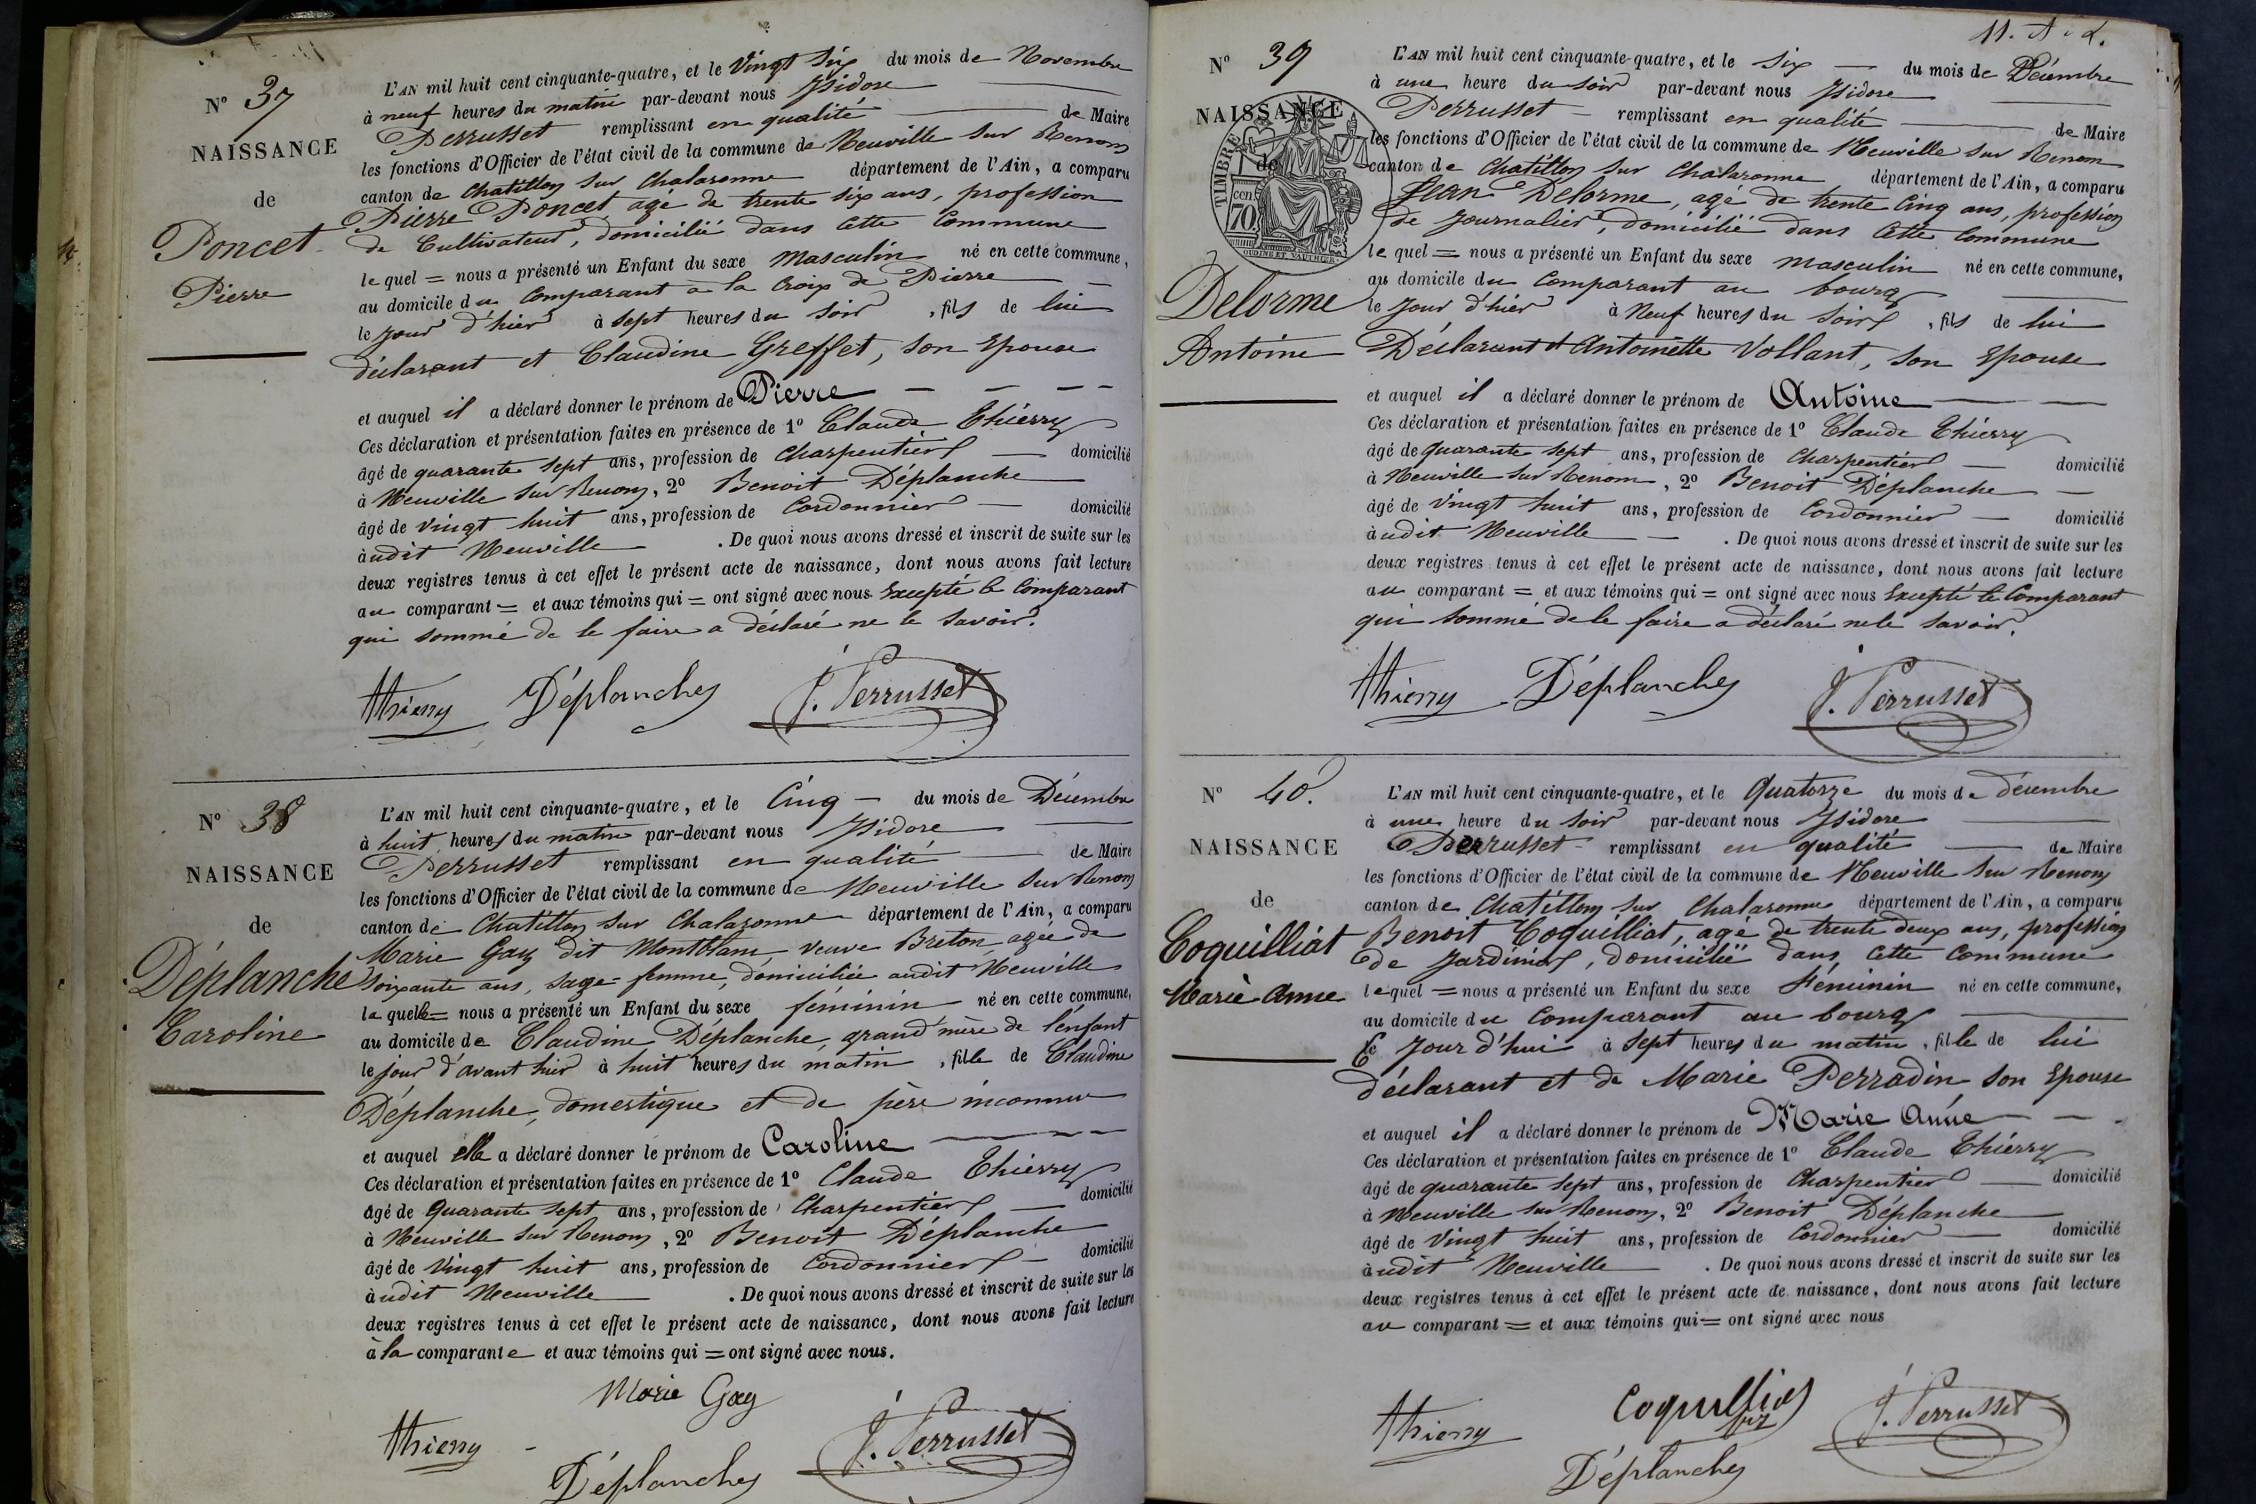 N° 37
NAISSANCE
de
Poncet
Pierre
L'AN mil huit cent cinquante-quatre, et le Vingt Six du mois de Novembre
à neuf heures du matin par-devant nous Isidore
Perrusset remplissant en qualité de Maire
les fonctions d'Officier de l'état civil de la commune de Neuville sur Renom
canton de Chatillon sur Chalaronne département de l'Ain, a comparu
Pierre Poncet age de trente six ans, profession
de Cultivateur, domicilié dans cette Commune
le quel = nous a présenté un Enfant du sexe masculin né en cette commune,
au domicile du Comparant a la Croix de Pierre
le jour d'hier à sept heures du soir, fils de lui
déclarant et Claudine Greffet, son Epouse
et auquel il a déclaré donner le prénom de Pierre
Ces déclaration et présentation faites en présence de 1° Claude Thiérry
âgé de quarante sept ans, profession de Charpentier domicilié
à Neuville sur Renom, 2° Benoit Déplanche
âgé de vingt huit ans, profession de Cordonnier domicilié
àudit Neuville. De quoi nous avons dressé et inscrit de suite sur les
deux registres tenus à cet effet le présent acte de naissance, dont nous avons fait lecture
au comparant = et aux témoins qui = ont signé avec nous Excepté le Comparant
qui sommé de le faire a déclaré ne le savoir.
Thierry Déplanches J. Perrusset
N° 38
NAISSANCE
de
Déplanche
Caroline
L'AN mil huit cent cinquante-quatre, et le Cinq du mois de Décembre
à huit heures du matin par-devant nous Isidore
Perrusset remplissant en qualité de Maire
les fonctions d'Officier de l'état civil de la commune de Neuville sur Renom
canton de Chatillon sur Chalaronne département de l'Ain, a comparu
Marie Gay dit Montblanc, veuve Breton, agée de
soixante ans, sage-femme, domiciliée audit Neuville
la quelle = nous a présenté un Enfant du sexe féminin né en cette commune,
au domicile de Claudine Déplanche, grand'mère de l'enfant
le jour d'avant hier à huit heures du matin, fille de Claudine
Déplanche, domestique et de père inconnu
et auquel elle a déclaré donner le prénom de Caroline
Ces déclaration et présentation faites en présence de 1° Claude Thiérry
âgé de Quarante sept ans, profession de Charpentier domicilié
à Neuville sur Renom, 2° Benoit Déplanche
âgé de Vingt huit ans, profession de Cordonnier domicilié
àudit Neuville. De quoi nous avons dressé et inscrit de suite sur les
deux registres tenus à cet effet le présent acte de naissance, dont nous avons fait lecture
à la comparante et aux témoins qui = ont signé avec nous.
Marie Gay
Thierry J. Perrusset
Déplanches
N° 39
NAISSANCE
de
TIMBRE
cen. 70.
OUDINE ET VAUTHIER
Delorme
Antoine
L'AN mil huit cent cinquante-quatre, et le Six du mois de Décembre
à une heure du soir par-devant nous Isidore
Perrusset remplissant en qualité de Maire
les fonctions d'Officier de l'état civil de la commune de Neuville sur Renom
canton de Chatillon sur Chalaronne département de l'Ain, a comparu
Jean Delorme, agé de trente Cinq ans, profession
de Journalier, domicilié dans Cette Commune
le quel = nous a présenté un Enfant du sexe masculin né en cette commune,
au domicile du Comparant au bourg
le jour d'hier à Neuf heures du soir, fils de lui
Déclarant et Antoinette Vollant, son Epouse
et auquel il a déclaré donner le prénom de Antoine
Ces déclaration et présentation faites en présence de 1° Claude Thiérry
âgé de quarante sept ans, profession de Charpentier domicilié
à Neuville sur Renom, 2° Benoit Déplanche
âgé de vingt huit ans, profession de Cordonnier domicilié
àudit Neuville. De quoi nous avons dressé et inscrit de suite sur les
deux registres tenus à cet effet le présent acte de naissance, dont nous avons fait lecture
au comparant = et aux témoins qui = ont signé avec nous Excepté le Comparant
qui sommé de le faire a déclaré ne le savoir.
Thierry Déplanches J. Perrusset
N° 40.
NAISSANCE
de
Coquilliat
Marie Anne
L'AN mil huit cent cinquante-quatre, et le Quatorze du mois de décembre
à une heure du soir par-devant nous Isidore
Perrusset remplissant en qualité de Maire
les fonctions d'Officier de l'état civil de la commune de Neuville sur Renom
canton de Chatillon sur Chalaronne département de l'Ain, a comparu
Benoit Coquilliat, agé de trente deux ans, profession
de Jardinier, domicilié dans cette Commune
le quel = nous a présenté un Enfant du sexe féminin né en cette commune,
au domicile du Comparant au bourg
Ce Jour d'hui à Sept heures du matin, fille de lui
déclarant et de Marie Perradin son Epouse
et auquel il a déclaré donner le prénom de Marie Anne
Ces déclaration et présentation faites en présence de 1° Claude Thiérry
âgé de quarante sept ans, profession de Charpentier domicilié
à Neuville sur Renom, 2° Benoit Déplanche
âgé de Vingt huit ans, profession de Cordonnier domicilié
àudit Neuville. De quoi nous avons dressé et inscrit de suite sur les
deux registres tenus à cet effet le présent acte de naissance, dont nous avons fait lecture
au comparant = et aux témoins qui = ont signé avec nous
Thierry Coquilliat J. Perrusset
Déplanches